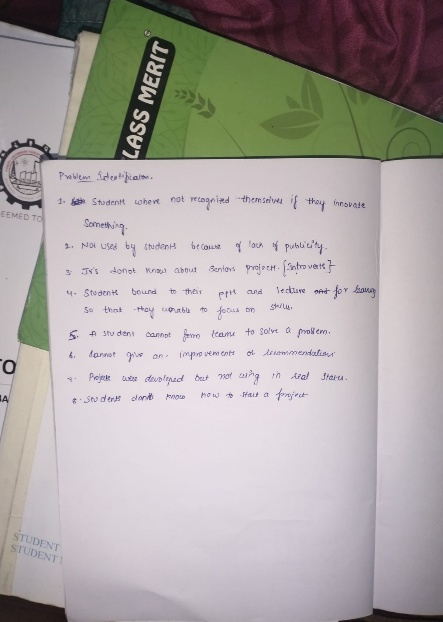 LASS MERIT
EEMED TO
Problem Identification.
1. Students where not recognized themselves if they innovate
Something.
2. Not uses by students because of lack of publicity.
3. Jr's donot know about seniors projects. [Introverts]
4. Students bound to their ppts and lecture for
So that they unable to focus on skills.
5. A student cannot form teams to solve a problem.
6. Cannot give an improvements or recommendations
Projects were developed but not using in real
8. Students don't know how to start a project
STUDENT
STUDENT